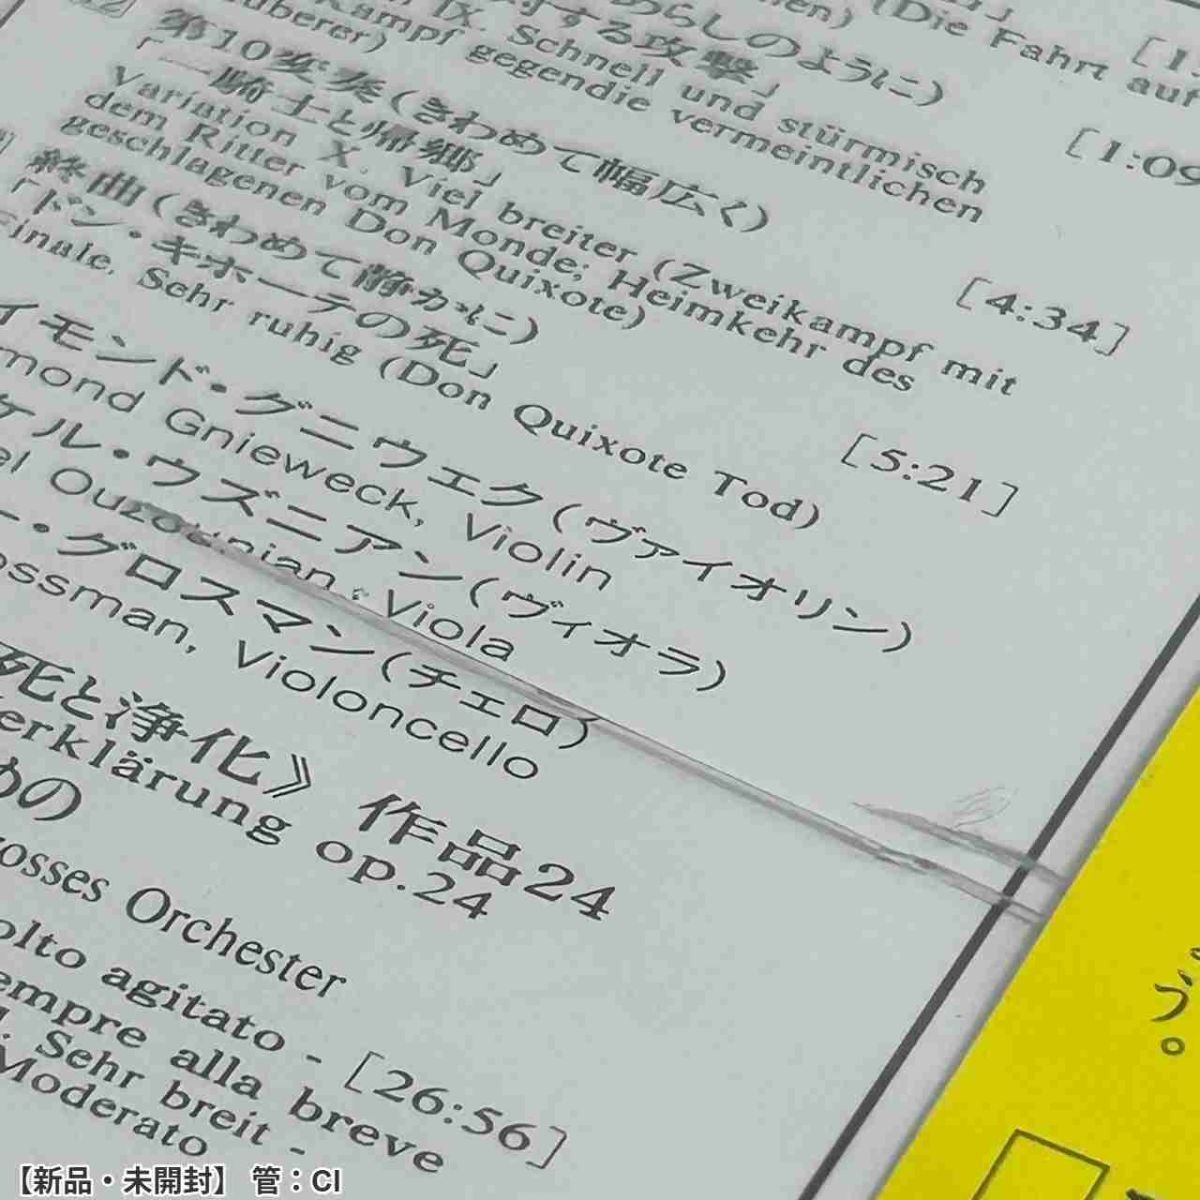 (Die Fahrt auf
めらしのように)
対する攻撃」
IX. Schnell und stürmisch
Kampf gegendie vermeintlichen
[1:09
第10変奏(きわめて幅広く)
「一騎士と帰郷」
Variation X. Viel breiter (Zweikampf mit
dem Ritter vom Monde; Heimkehr des
geschlagenen Don Quixote)
[4:34]
終曲(きわめて静かに)
「ドン・キホーテの死」
Finale. Sehr ruhig (Don Quixote Tod)
[5:21]
イモンド・グニウェク(ヴァイオリン)
mond Gnieweck, Violin
ケル・ウズニアン(ヴィオラ)
el Ouzounian, Viola
ー・グロスマン(チェロ)
ossman, Violoncello
死と浄化》 作品24
erklärung op.24
めの
rosses Orchester
olto agitato -
empre alla breve
Sehr breit -
Moderato
[26:56]
う。
【新品・未開封】 管：CI